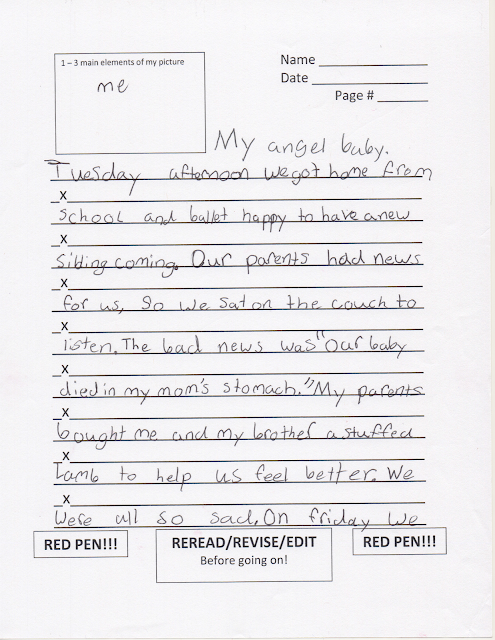 1 – 3 main elements of my picture
me
Name
Date
Page #
My angel baby.
Tuesday afternoon we got home from
X
school and ballet happy to have a new
X
sibling coming. Our parents had news
X
for us, So we sat on the couch to
X
listen. The bad news was "Our baby
X
died in my mom's stomach." My parents
X
bought me and my brother a stuffed
X
Lamb to help us feel better. We
X
Were all so sad. On friday we
RED PEN!!!
REREAD/REVISE/EDIT
Before going on!
RED PEN!!!